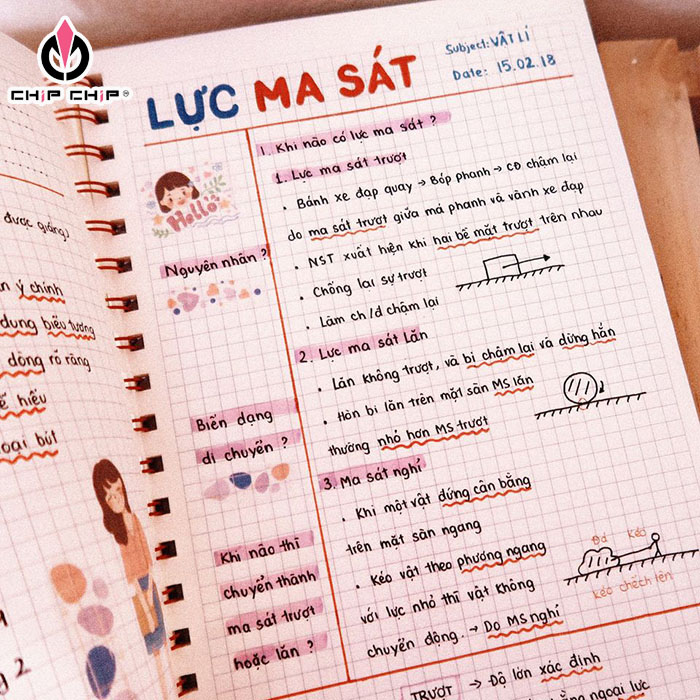 CHIP CHIP®
LỰC MA SÁT
Subject: VẬT LÍ
Date: 15.02.18
1. Khi nào có lực ma sát ?
1. Lực ma sát trượt
• Bánh xe đạp quay → Bóp phanh → CĐ chậm lại
do ma sát trượt giữa má phanh và vành xe đạp
• NST xuất hiện khi hai bề mặt trượt trên nhau
• Chống lại sự trượt
• Làm ch/đ chậm lại
2. Lực ma sát lăn
• Lăn không trượt, và bị chậm lại và dừng hẳn
• Hòn bi lăn trên mặt sàn MS lăn
thường nhỏ hơn MS trượt
3. Ma sát nghỉ
• Khi một vật đứng cân bằng
trên mặt sàn ngang
• Kéo vật theo phương ngang
với lực nhỏ thì vật không
chuyển động. → Do MS nghỉ
Hello
Nguyên nhân ?
Biến dạng
di chuyển ?
Khi nào thì
chuyển thành
ma sát trượt
hoặc lăn ?
Đá Kéo
kéo chếch lên
TRƯỢT → Độ lớn xác định
bằng ngoại lực
được giảng)
n ý chính
dung biểu tượng
dòng rõ ràng
ể hiểu
oại bút
2